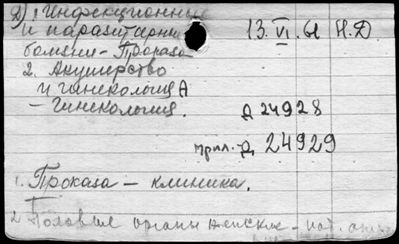 2) 1. Инфекционные
и паразитарн.
болезни - Проказа
13.VI.61 Н.Д.
2. Акушерство
и гинекология
- Гинекология.
Д 24928
прил. Д 24929
1. Проказа – клиника.
2. Половые органы женские - пат.